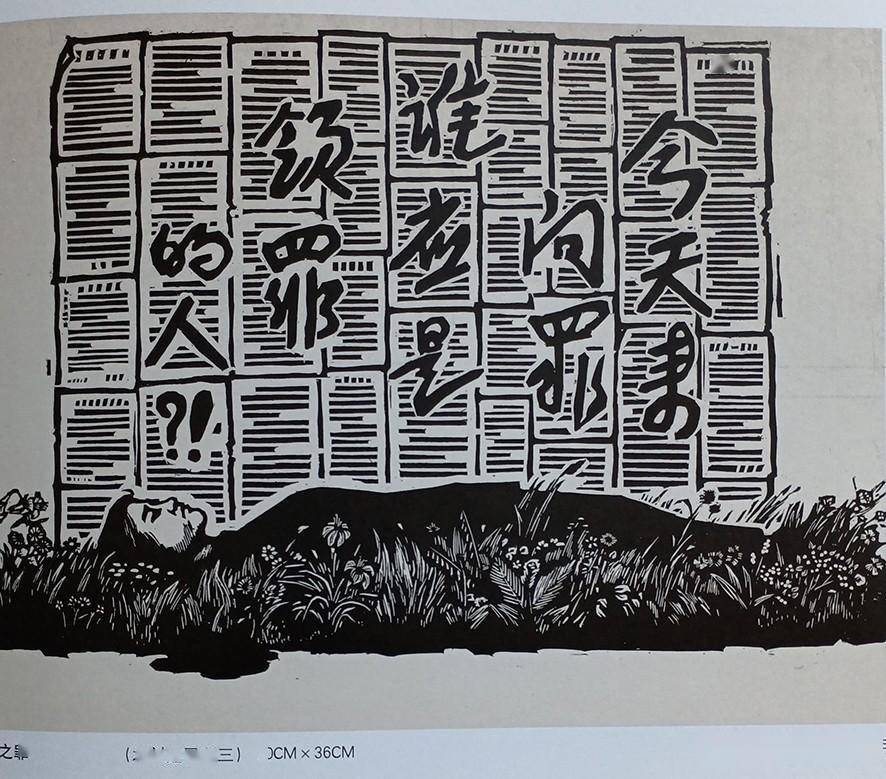 今天来
问罪
谁应是
领罪
的人?!
之罪
三) 0CM × 36CM